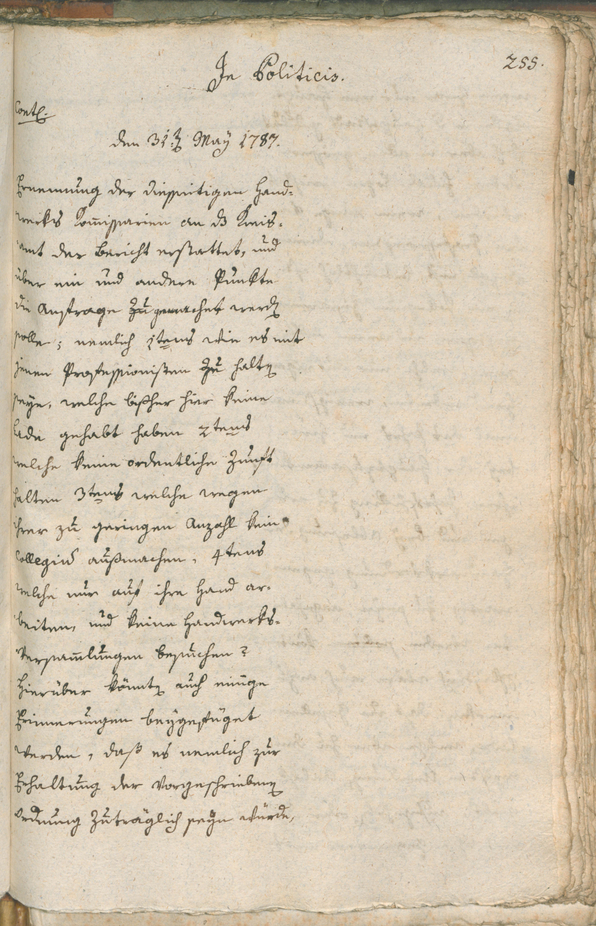 In Politicis.
255.
Cont.
den 31t May 1787.
Ernennung der diesseitigen Hand-
werks Commissarien an das Kreis-
amt der Bericht erstattet, und
über ein und andere Punkte
die Anfrage zu gemachet werd
solle; nemlich 1tens wie es mit
jenen Professionisten zu halt
seye, welche bißher hier keine
Lade gehabt haben 2tens
welche keine ordentliche Zunft
halten 3tens welche wegen
ihrer zu geringen Anzahl kein
Collegium außmachen, 4tens
welche nur auf ihre Hand ar-
beiten, und keine Handwerks-
Versammlungen besuchen?
Hierüber könnt auch einige
Erinnerungen beygefüget
werden, daß es nemlich zur
Erhaltung der Vorgeschrieben
Ordnung zuträglich seyn würde,